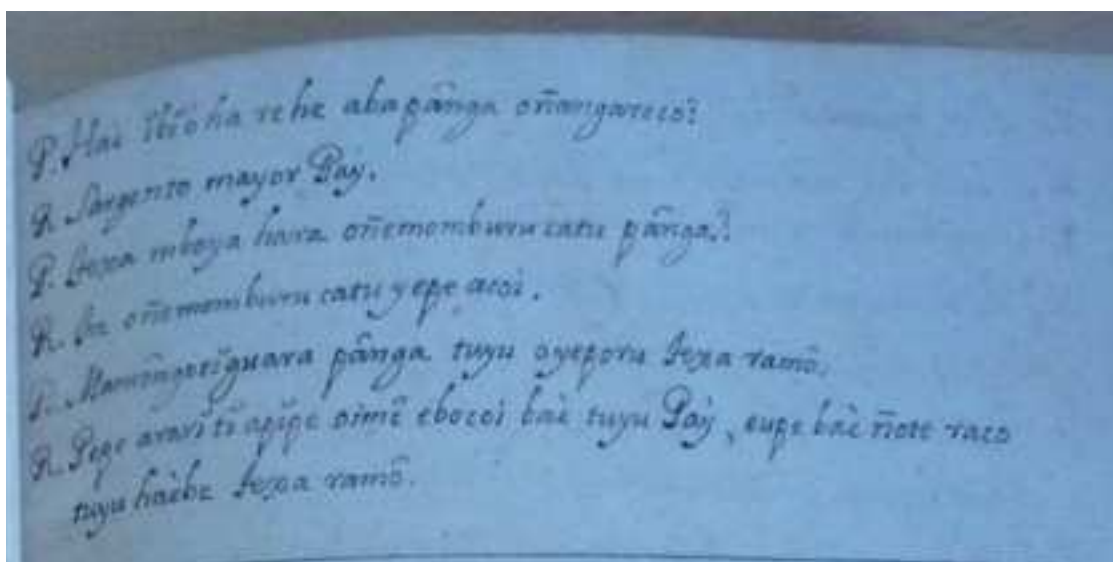 P. Hai itĩoha rehe aba pânga oñangareco?
R. Sargento mayor Paý.
P. Texa mboya hara oñemomburu catu pânga?
R. Ta oñemomburu catu y epe acoi.
P. Mamôngotiguara pânga tuyu oyeporu texa ramô.
R. Pepe arari ti apĭpe oimê ebocoi baè tuyu Paý, eupe baè ñote raco
tuyu haèbe texa ramô.